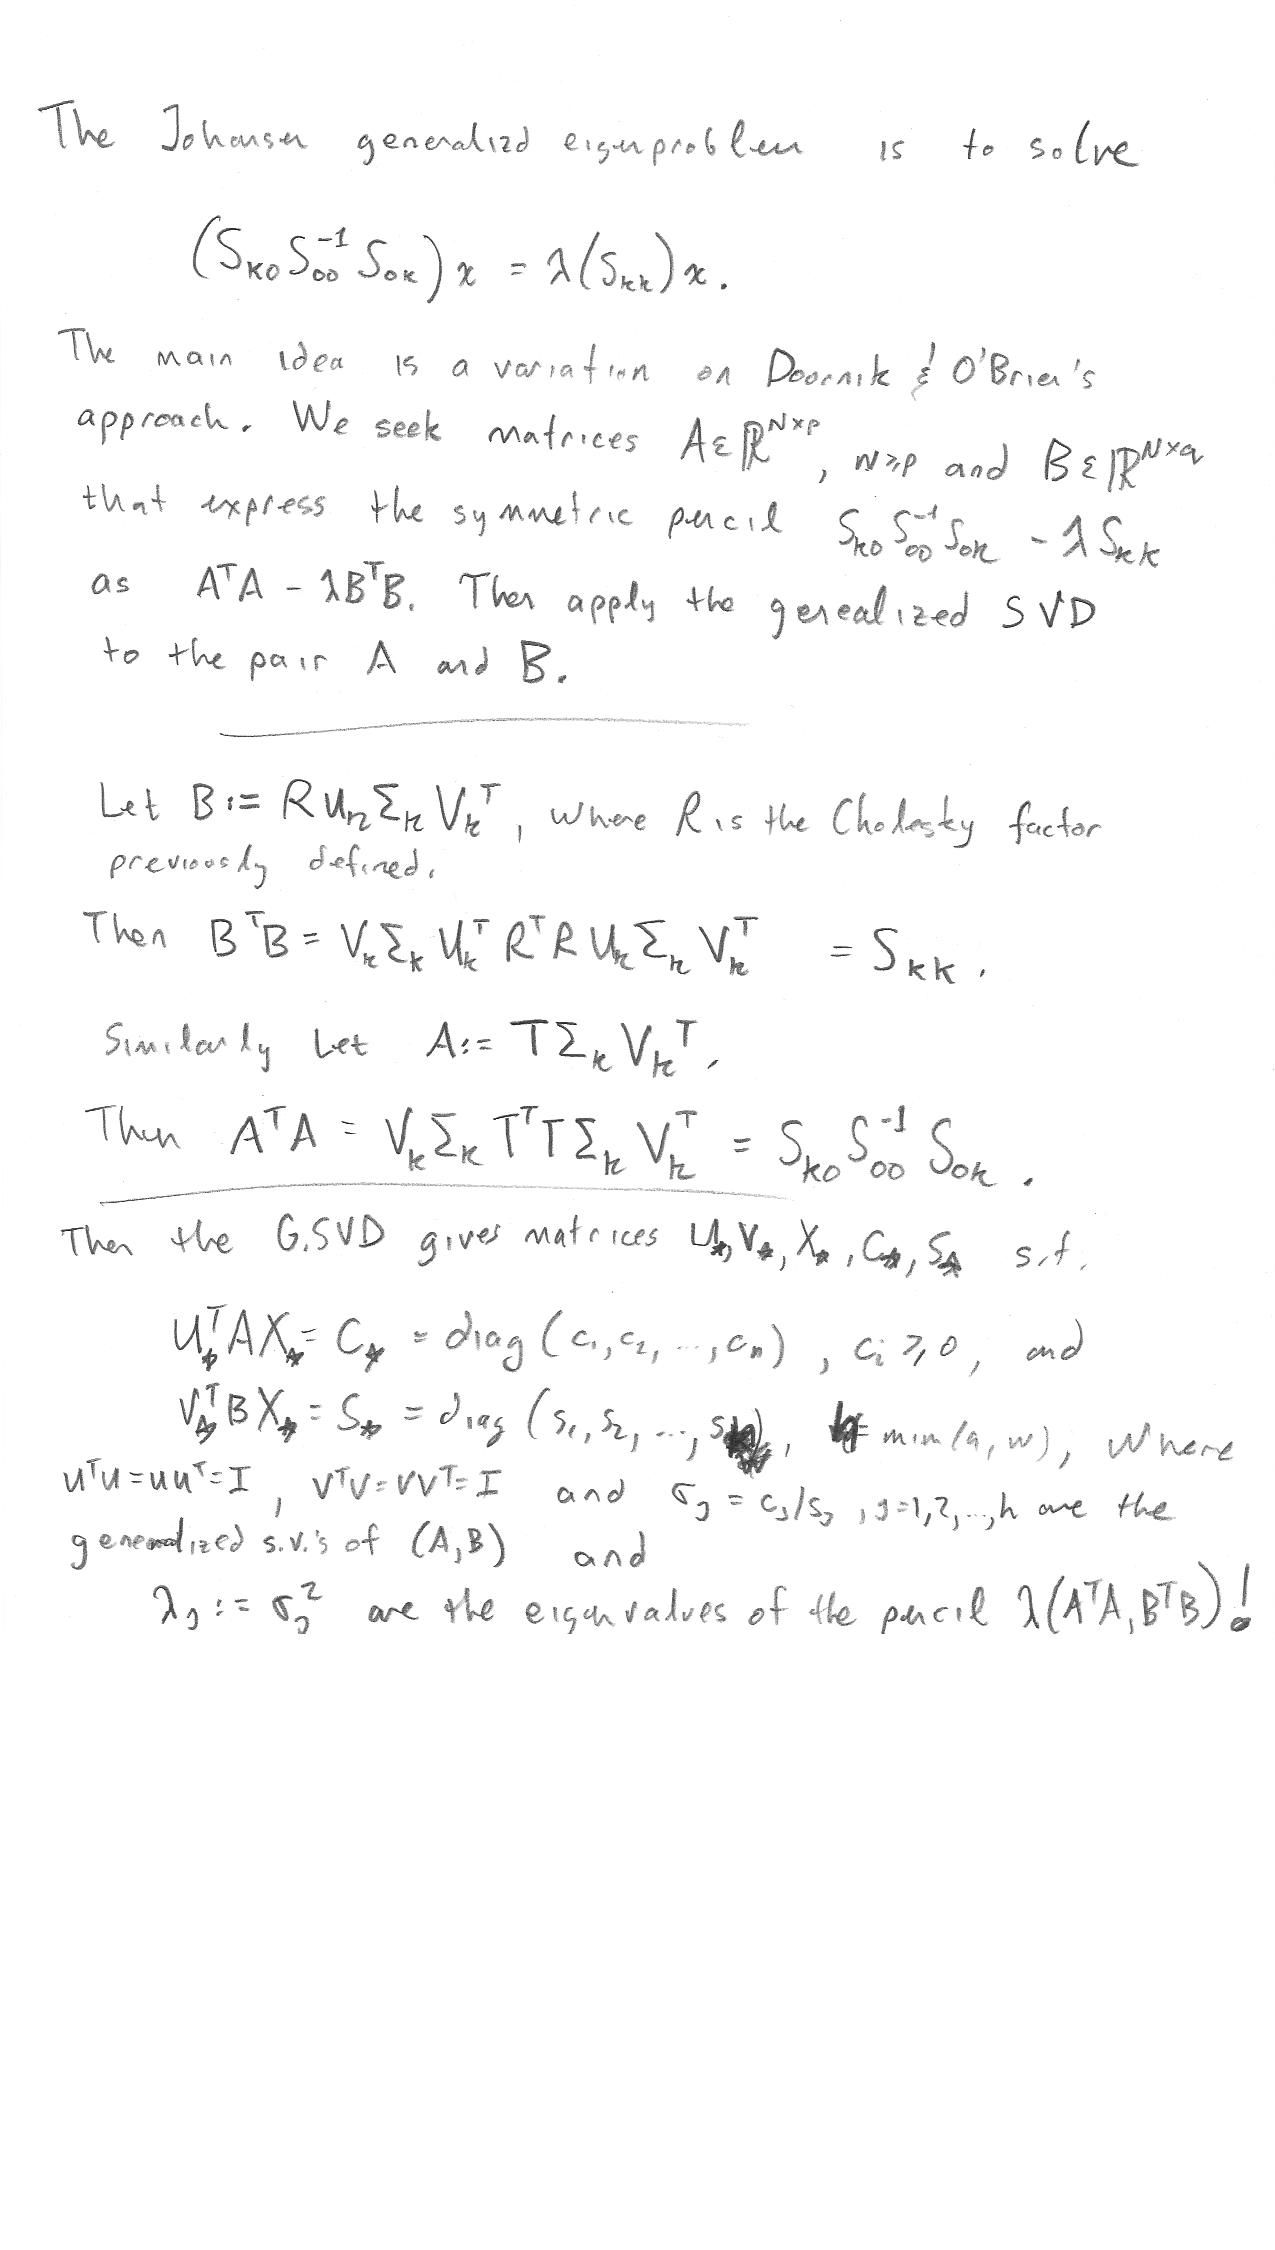 The Johansen generalizd eigenproblem is to solve
(S_{K0} S_{00}^{-1} S_{0K}) x = λ(S_{kk}) x.
The main idea is a variation on Doornik & O'Brien's
approach. We seek matrices A ε ℝ^{N×p}, N≥p and B ε ℝ^{N×q}
that express the symmetric pencil S_{k0} S_{00}^{-1} S_{0k} - λ S_{kk}
as A^T A - λB^T B. Then apply the gerealized SVD
to the pair A and B.
Let B := R U_k Σ_k V_k^T, where R is the Cholesky factor
previously defined.
Then B^T B = V_k Σ_k U_k^T R^T R U_k Σ_k V_k^T = S_{kk}.
Similarly Let A := T Σ_k V_k^T.
Then A^T A = V_k Σ_k T^T T Σ_k V_k^T = S_{k0} S_{00}^{-1} S_{0k}.
Then the GSVD gives matrices U_*, V_*, X_*, C_*, S_* s.t.
U_*^T A X_* = C_* = diag (c_1, c_2, ..., c_n), c_i ≥ 0, and
V_*^T B X_* = S_* = diag (s_1, s_2, ..., s), = min(q, n), where
U^T U = U U^T = I, V^T V = V V^T = I and σ_j = c_j/s_j, j=1,2,...,h are the
generalized s.v.'s of (A,B) and
λ_j := σ_j^2 are the eigenvalues of the pencil λ(A^T A, B^T B)!